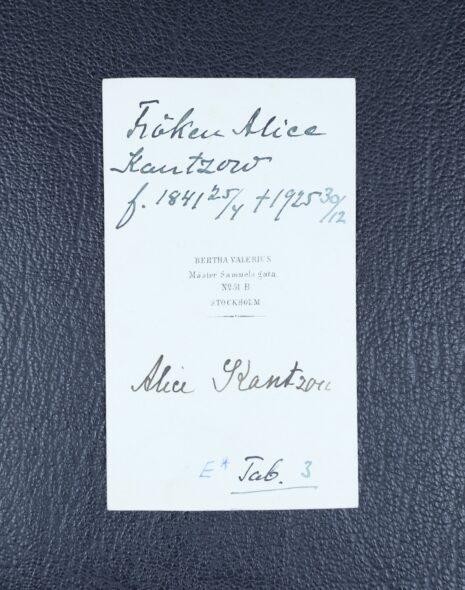 Fröken Alice
Kantzow
f. 1841 25/4 †1925 30/12
BERTHA VALERIUS
Mäster Samuels gata.
No 51 B.
STOCKHOLM
Alice Kantzow
E* Tab. 3